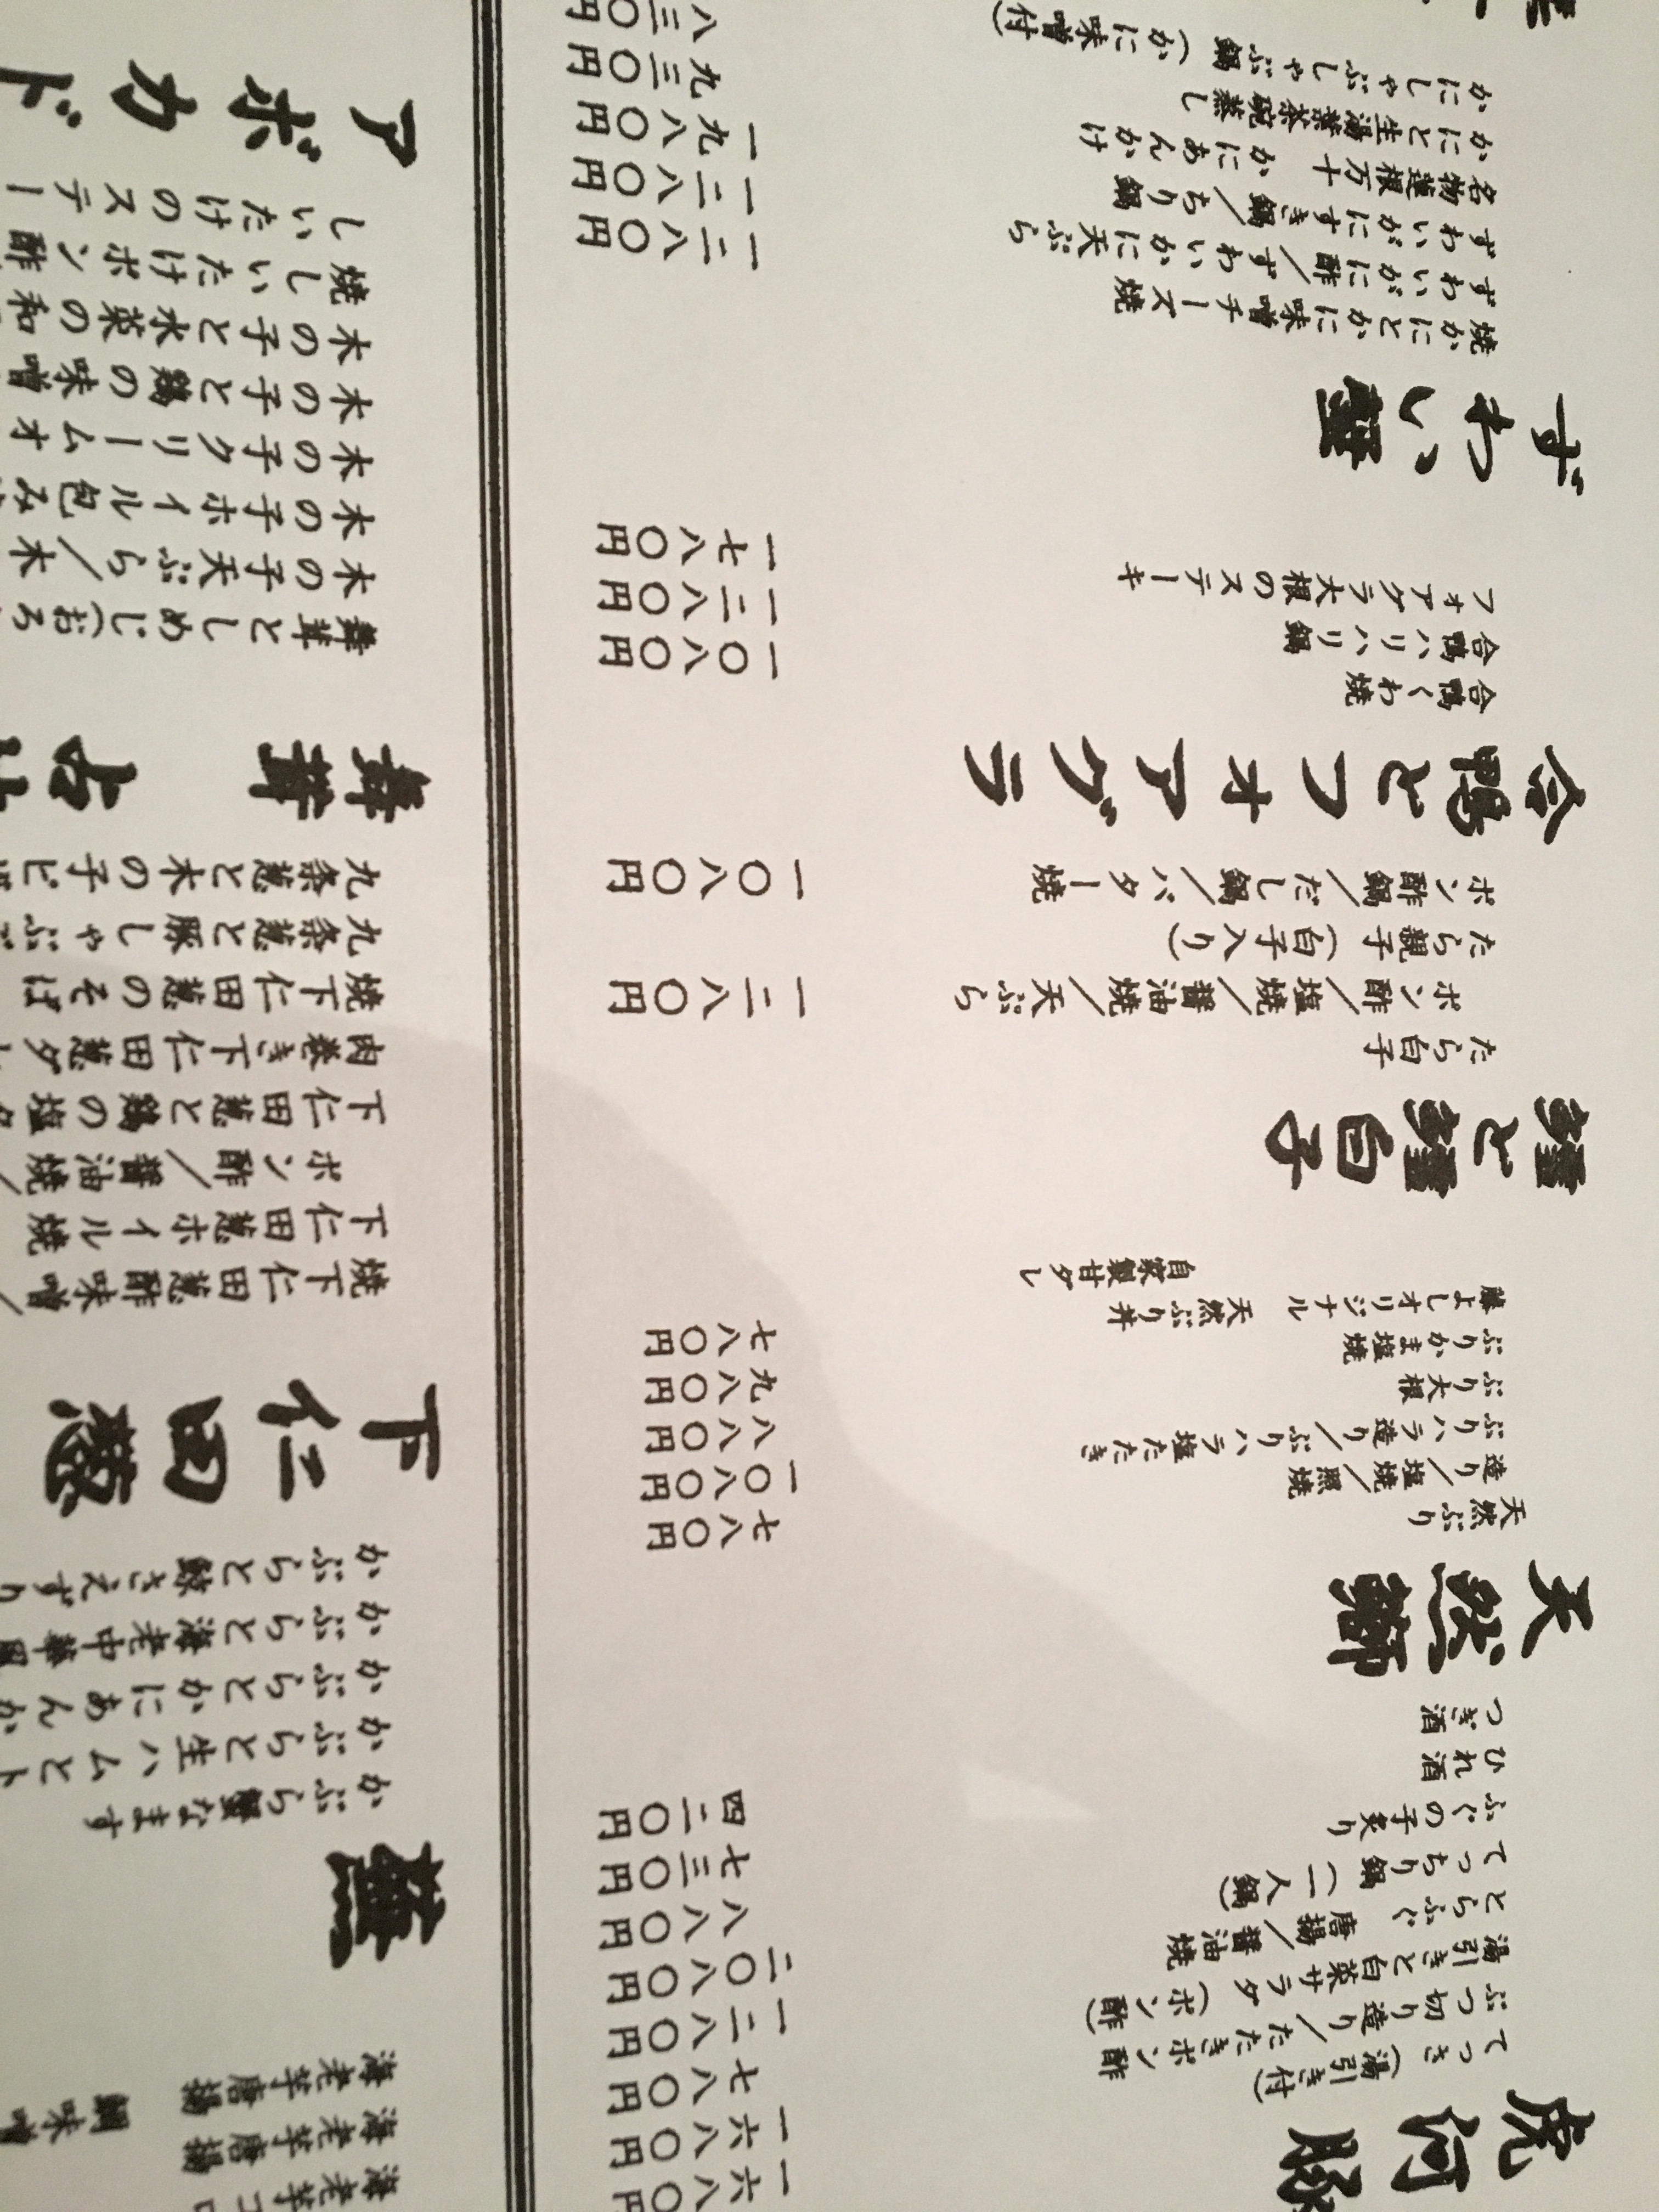 虎河豚
てっさ（湯引き付） 一六八〇円
ぶつ切り造り／たたきポン酢 一六八〇円
湯引きと白菜サラダ（ポン酢） 七八〇円
とらふぐ 唐揚／醤油焼 一二八〇円
てっちり鍋（一人鍋） 二〇八〇円
ふぐの子炙り 八八〇円
ひれ酒 七三〇円
つぎ酒 四二〇円
天然鰤
天然ぶり
造り／塩焼／照焼 七八〇円
ぶりハラ造り／ぶりハラ塩たたき 一〇八〇円
ぶり大根 八八〇円
ぶりかま塩焼 九八〇円
藤よしオリジナル 天然ぶり丼 七八〇円
自家製甘ダレ
鱈と鱈白子
たら白子
ポン酢／塩焼／醤油焼／天ぷら 一二八〇円
たら親子（白子入り）
ポン酢鍋／だし鍋／バター焼 一〇八〇円
合鴨とフォアグラ
合鴨くわ焼 一〇八〇円
合鴨ハリハリ鍋 一二八〇円
フォアグラ大根のステーキ 一七八〇円
ずわい蟹
焼かにとかに味噌チーズ焼 一二八〇円
ずわいがに酢／ずわいかに天ぷら 一二八〇円
ずわいがにすき鍋／ちり鍋 一九八〇円
名物蓮根万十 かにあんかけ 九三〇円
かにと生湯葉茶碗蒸し 八三〇円
かにしゃぶしゃぶ鍋（かに味噌付）
海老芋コロ
海老芋唐揚
海老芋唐揚 鯛味噌
蕪
かぶら蟹なます
かぶらと生ハムとト
かぶらとかにあんか
かぶらと海老中華風
かぶらと鯨さえずり
下仁田葱
焼下仁田葱酢味噌／
下仁田葱ホイル焼
ポン酢／醤油焼／
下仁田葱と鶏の塩タ
肉巻き下仁田葱タレ
焼下仁田葱のそば
九条葱と豚しゃぶ
九条葱と木の子ピ
舞茸 占地
舞茸としめじ（おろ
木の子天ぷら／木
木の子ホイル包み
木の子クリームオ
木の子と鶏の味噌
木の子と水菜の和
焼しいたけポン酢
しいたけのステー
アボカド